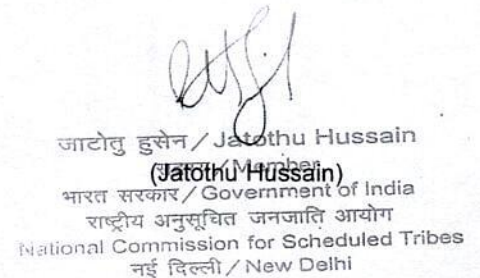 जाटोतु हुसेन / Jatothu Hussain
सदस्य / Member
(Jatothu Hussain)
भारत सरकार / Government of India
राष्ट्रीय अनुसूचित जनजाति आयोग
National Commission for Scheduled Tribes
नई दिल्ली / New Delhi